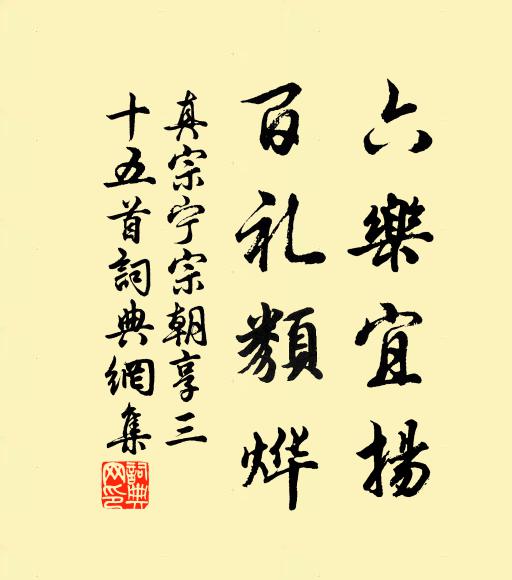 六樂宜揚
百礼類烨
真宗宁宗朝享三
十五首詞典網集
詞典网印